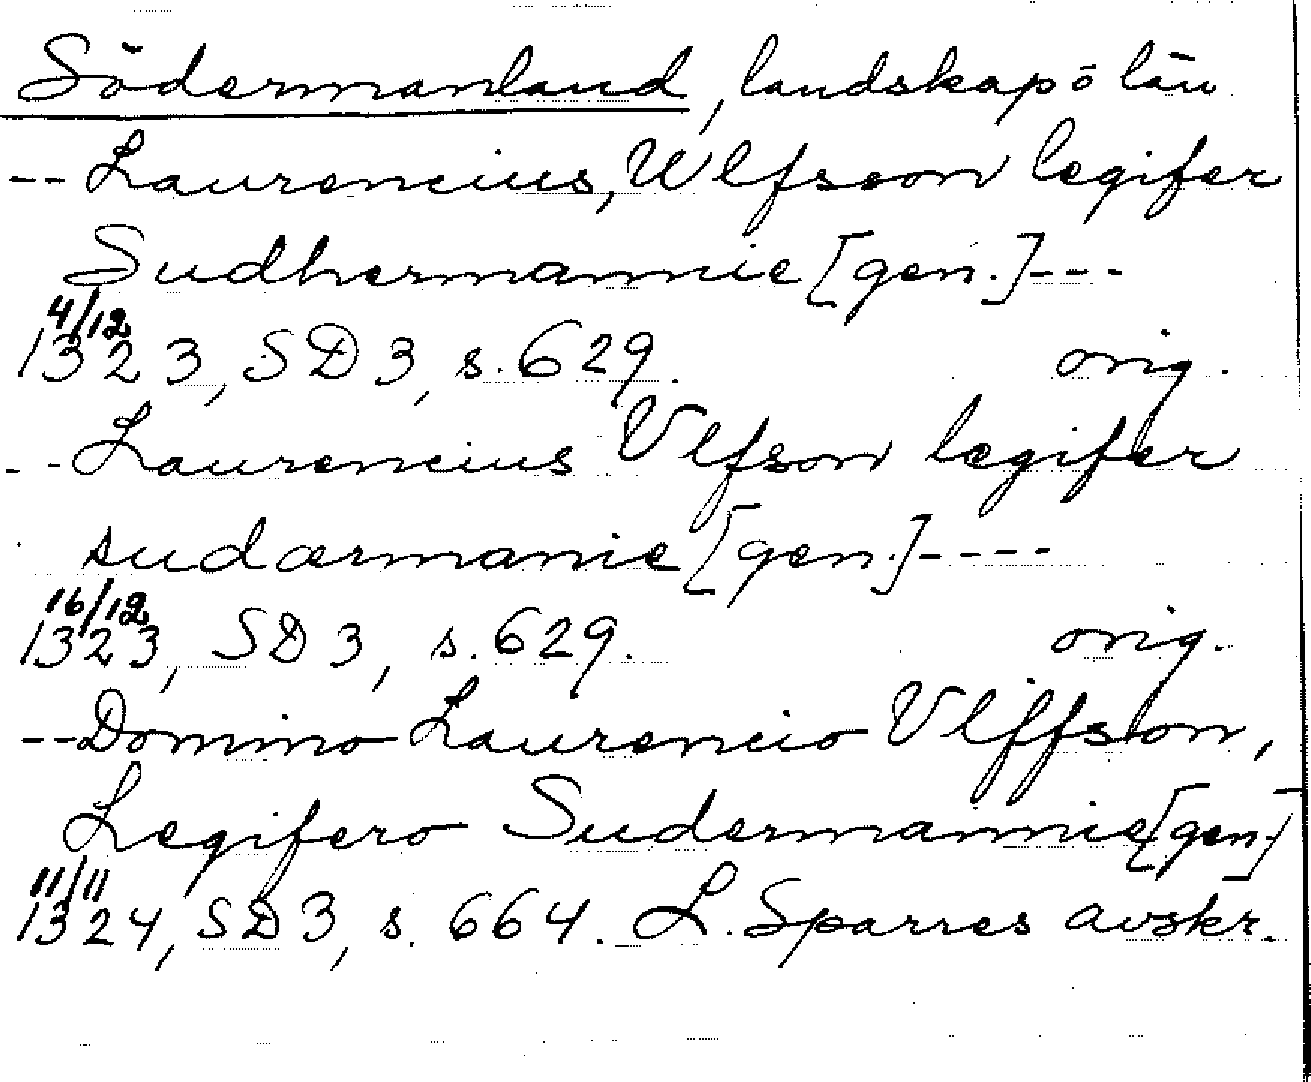 Södermanland, landskap o län
-- Laurencius, Wlfsson legifer
Sudhermannie [gen.]---
4/12
1323, SD 3, s. 629. orig.
-- Laurencius Vlfson legifer
sudærmanie [gen.]----
16/12
1323, SD 3, s. 629. orig.
-- Domino Laurencio Vlffson,
Legifero Sudermannie [gen.]
11/11
1324, SD 3, s. 664. L. Sparres avskr.